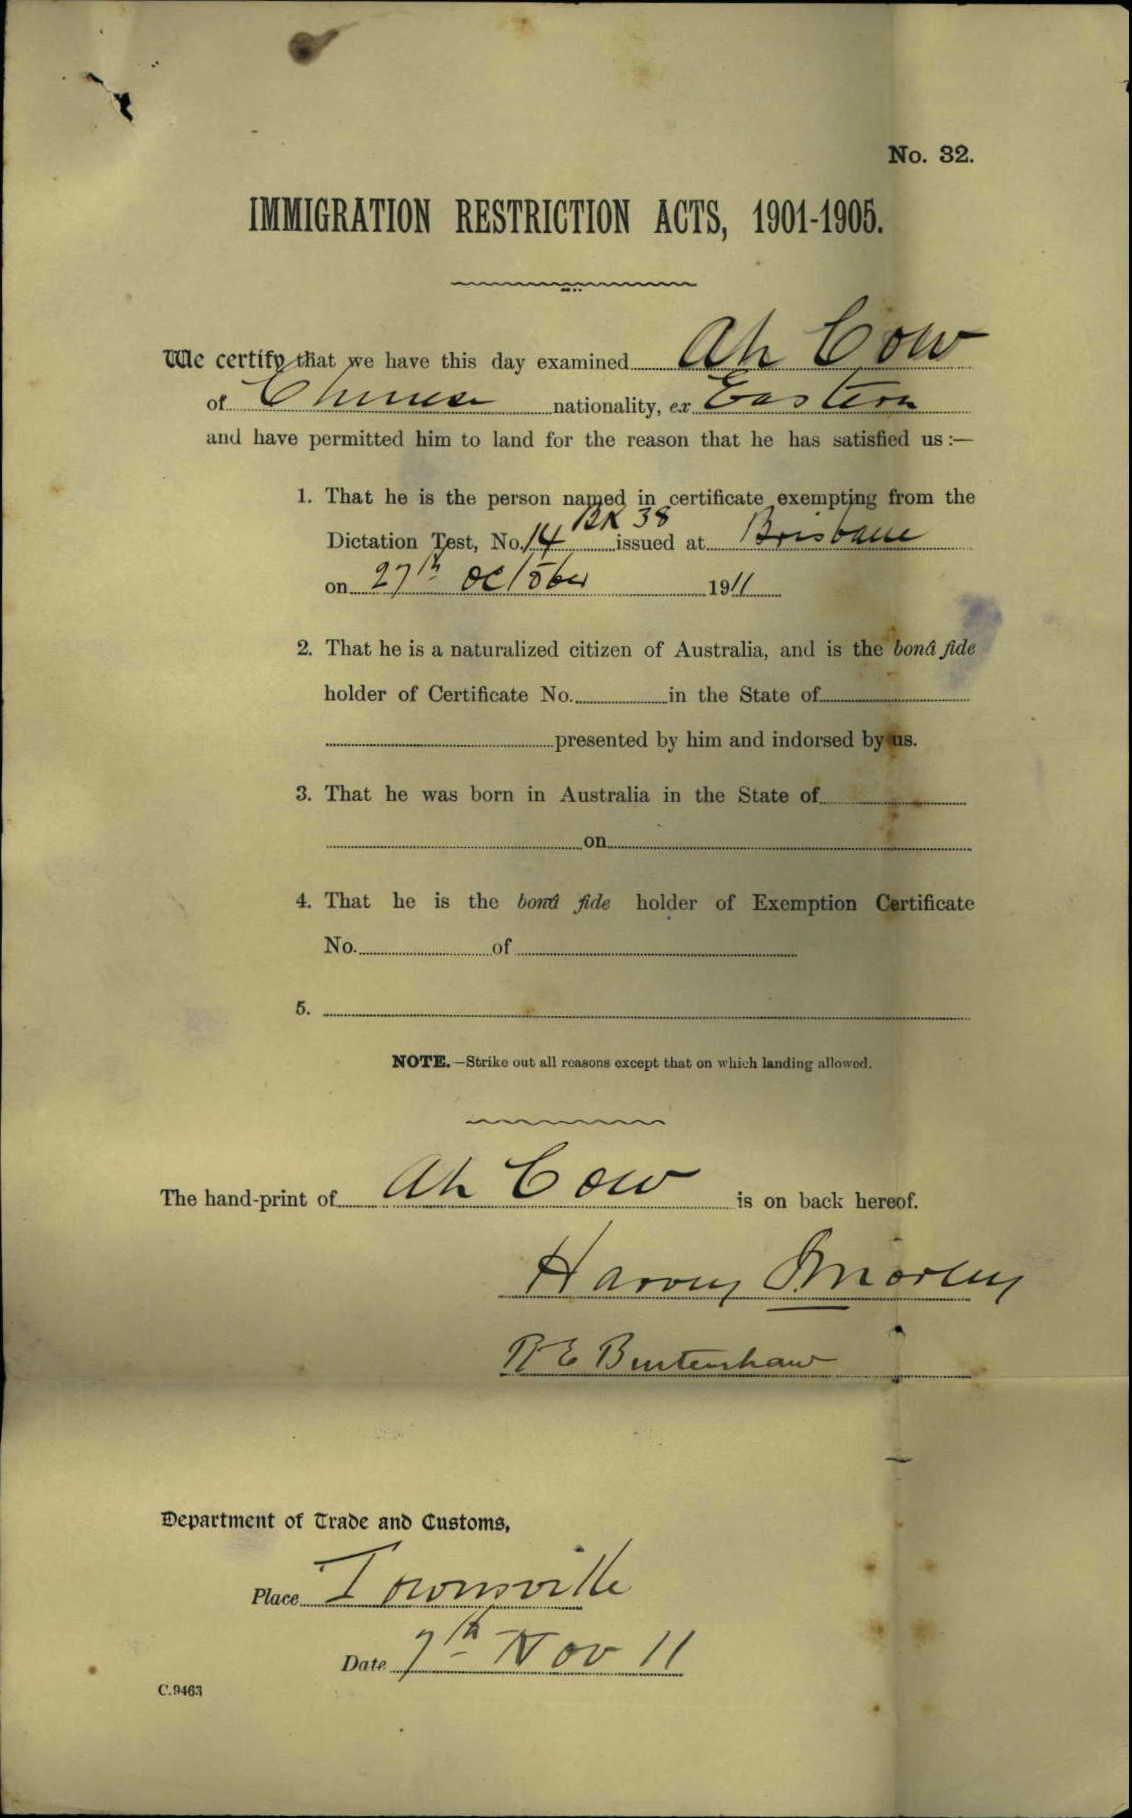 No. 32.
IMMIGRATION RESTRICTION ACTS, 1901-1905.
We certify that we have this day examined Ah Cow
of Chinese nationality, ex Eastern
and have permitted him to land for the reason that he has satisfied us :—
1. That he is the person named in certificate exempting from the
BK 38
Dictation Test, No. 14 issued at Brisbane
on 27th October 1911
2. That he is a naturalized citizen of Australia, and is the bonâ fide
holder of Certificate No. in the State of
presented by him and indorsed by us.
3. That he was born in Australia in the State of
on
4. That he is the bonâ fide holder of Exemption Certificate
No. of
5.
NOTE.—Strike out all reasons except that on which landing allowed.
The hand-print of Ah Cow is on back hereof.
Harvey Morley
R E Burtenshaw
Department of Trade and Customs,
Place Townsville
Date 7th Nov 11
C.9463